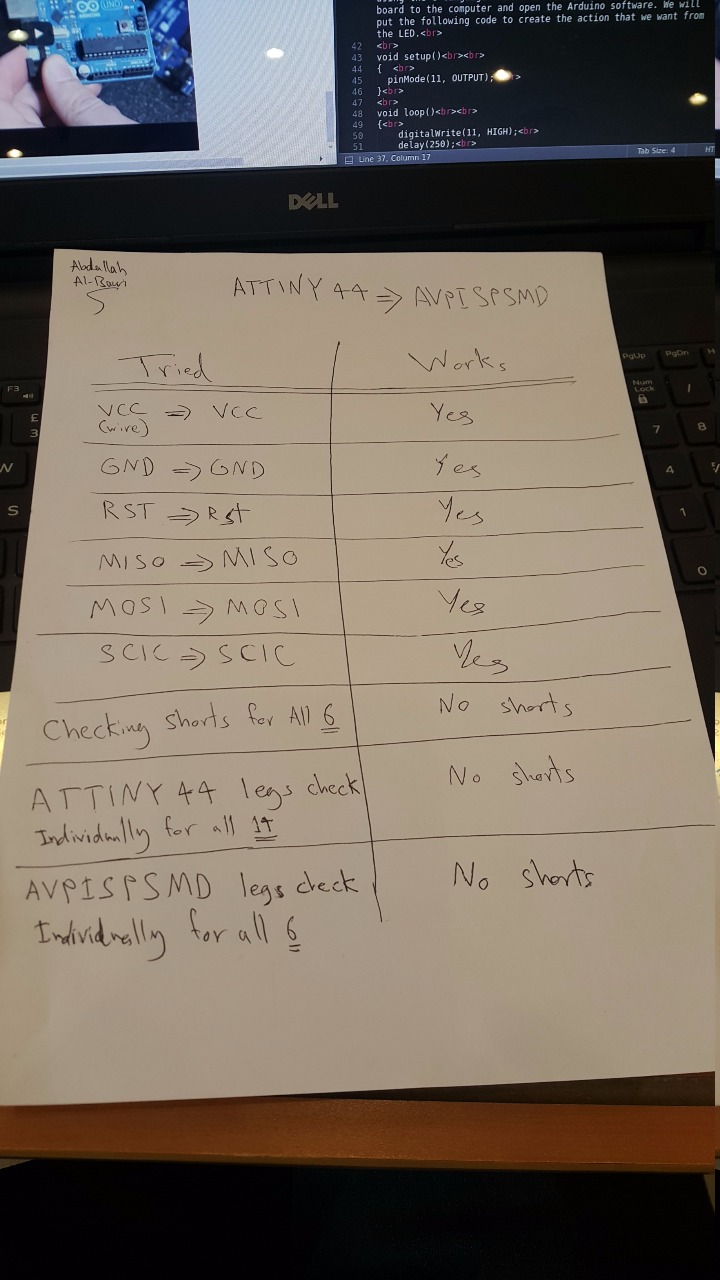 ARDUINO
UNO
board to the computer and open the Arduino software. We will
put the following code to create the action that we want from
the LED.<br>
42 <br>
43 void setup()<br><br>
44 { <br>
45 pinMode(11, OUTPUT);
46 }<br>
47 <br>
48 void loop()<br><br>
49 {<br>
50 digitalWrite(11, HIGH);<br>
51 delay(250);<br>
Line 37, Column 17 Tab Size: 4 HT
DELL
Abdallah
ATTINY 44 => AVPISPSMD
Tried Works
VCC => VCC Yes
(wire)
GND => GND Yes
RST => Rst Yes
MISO => MISO Yes
MOSI => MOSI Yes
SCIC => SCIC Yes
Checking shorts for All 6 No shorts
ATTINY 44 legs check No shorts
Individually for all 14
AVPISPSMD legs check No shorts
Individually for all 6
F3
£
3
W
S
PgUp PgDn
Num
Lock
/
7 8
4
1
0